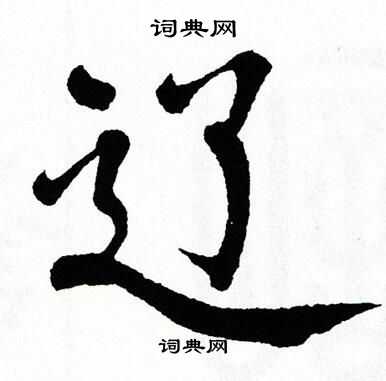 词典网
辽
词典网